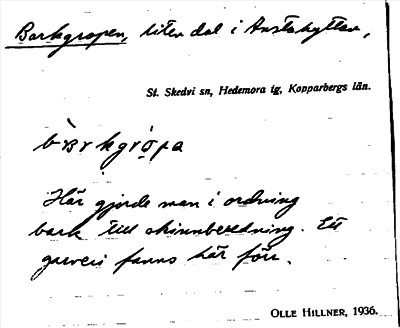 Barkgropen, liten dal i Anstahyttan,
St. Skedvi sn, Hedemora tg, Kopparbergs län.
Här gjorde man i ordning
bark till skinnberedning. Ett
garveri fanns här förr.
OLLE HILLNER, 1936.